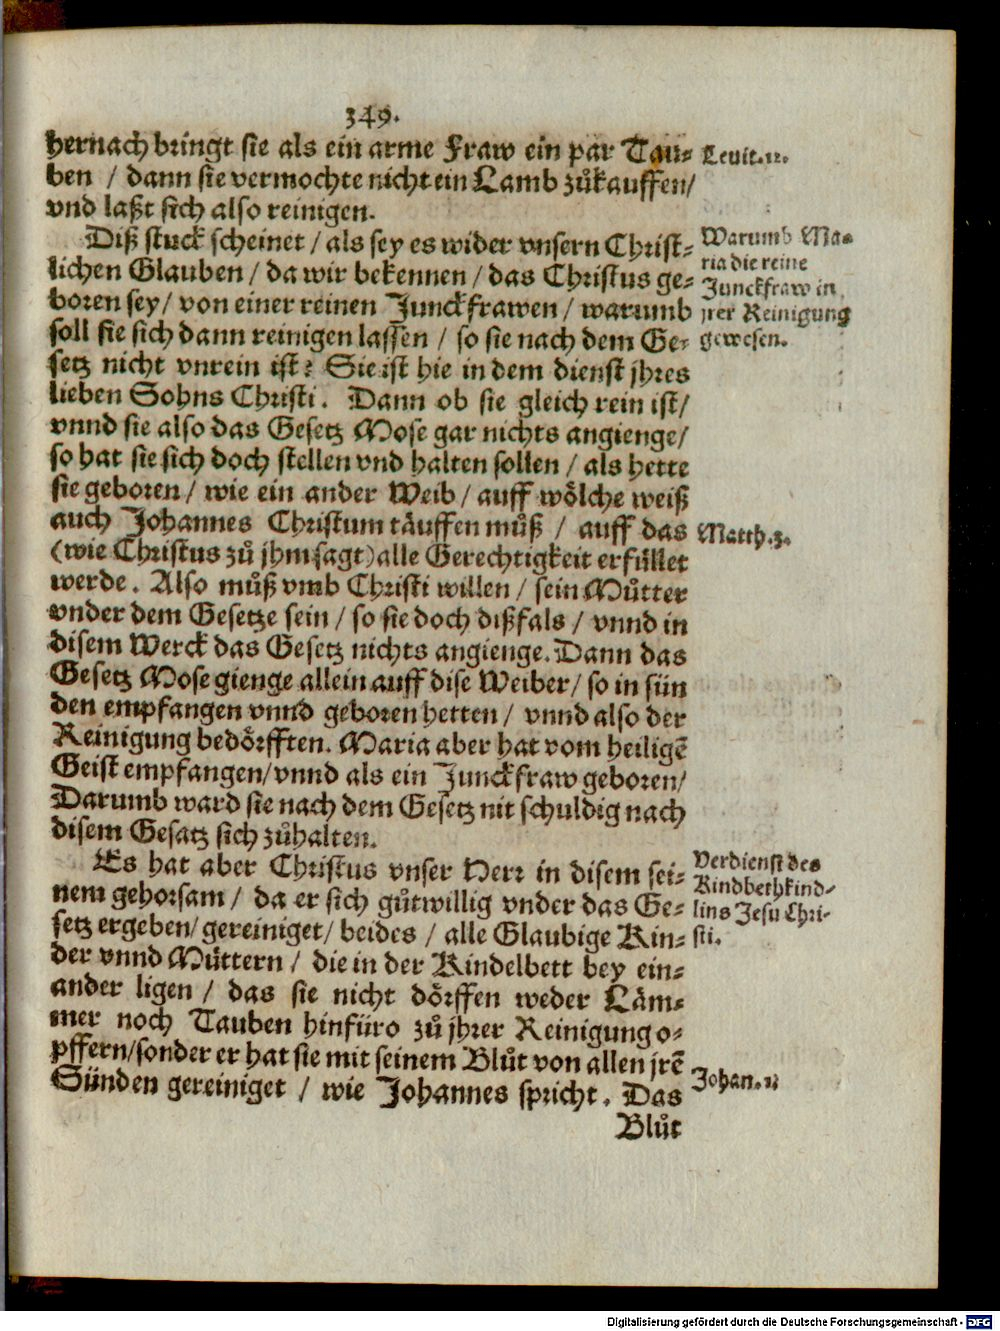 349.
hernach bringt sie als ein arme Fraw ein par Tau⸗
ben / dann sie vermochte nicht ein Lamb zůkauffen /
vnd laßt sich also reinigen.
Leuit.12.
Diß stuck scheinet / als sey es wider vnsern Christ⸗
lichen Glauben / da wir bekennen / das Christus ge⸗
boren sey / von einer reinen Junckfrawen / warumb
soll sie sich dann reinigen lassen / so sie nach dem Ge⸗
setz nicht vnrein ist? Sie ist hie in dem dienst jhres
lieben Sohns Christi. Dann ob sie gleich rein ist /
vnnd sie also das Gesetz Mose gar nichts angienge /
so hat sie sich doch stellen vnd halten sollen / als hette
sie geboren / wie ein ander Weib / auff wölche weiß
auch Johannes Christum täuffen můß / auff das
(wie Christus zů jhm sagt) alle Gerechtigkeit erfüllet
werde. Also můß vmb Christi willen / sein Můtter
vnder dem Gesetze sein / so sie doch dißfals / vnnd in
disem Werck das Gesetz nichts angienge. Dann das
Gesetz Mose gienge allein auff dise Weiber / so in sün
den empfangen vnnd geboren hetten / vnnd also der
Reinigung bedörfften. Maria aber hat vom heiligē
Geist empfangen / vnnd als ein Junckfraw geboren /
Darumb ward sie nach dem Gesetz nit schuldig nach
disem Gesatz sich zůhalten.
Warumb Ma⸗
ria die reine
Junckfraw in
jrer Reinigung
gewesen.
Matth.3.
Es hat aber Christus vnser Herr in disem sei⸗
nem gehorsam / da er sich gůtwillig vnder das Ge⸗
setz ergeben / gereiniget / beides / alle Glaubige Kin⸗
der vnnd Müttern / die in der Kindelbett bey ein⸗
ander ligen / das sie nicht dörffen weder Läm⸗
mer noch Tauben hinfüro zů jhrer Reinigung o⸗
pffern / sonder er hat sie mit seinem Blůt von allen jrē
Sünden gereiniget / wie Johannes spricht. Das
Verdienst des
Kindbethkind⸗
lins Jesu Chri⸗
sti.
Johan.1
Blůt
Digitalisierung gefördert durch die Deutsche Forschungsgemeinschaft - DFG